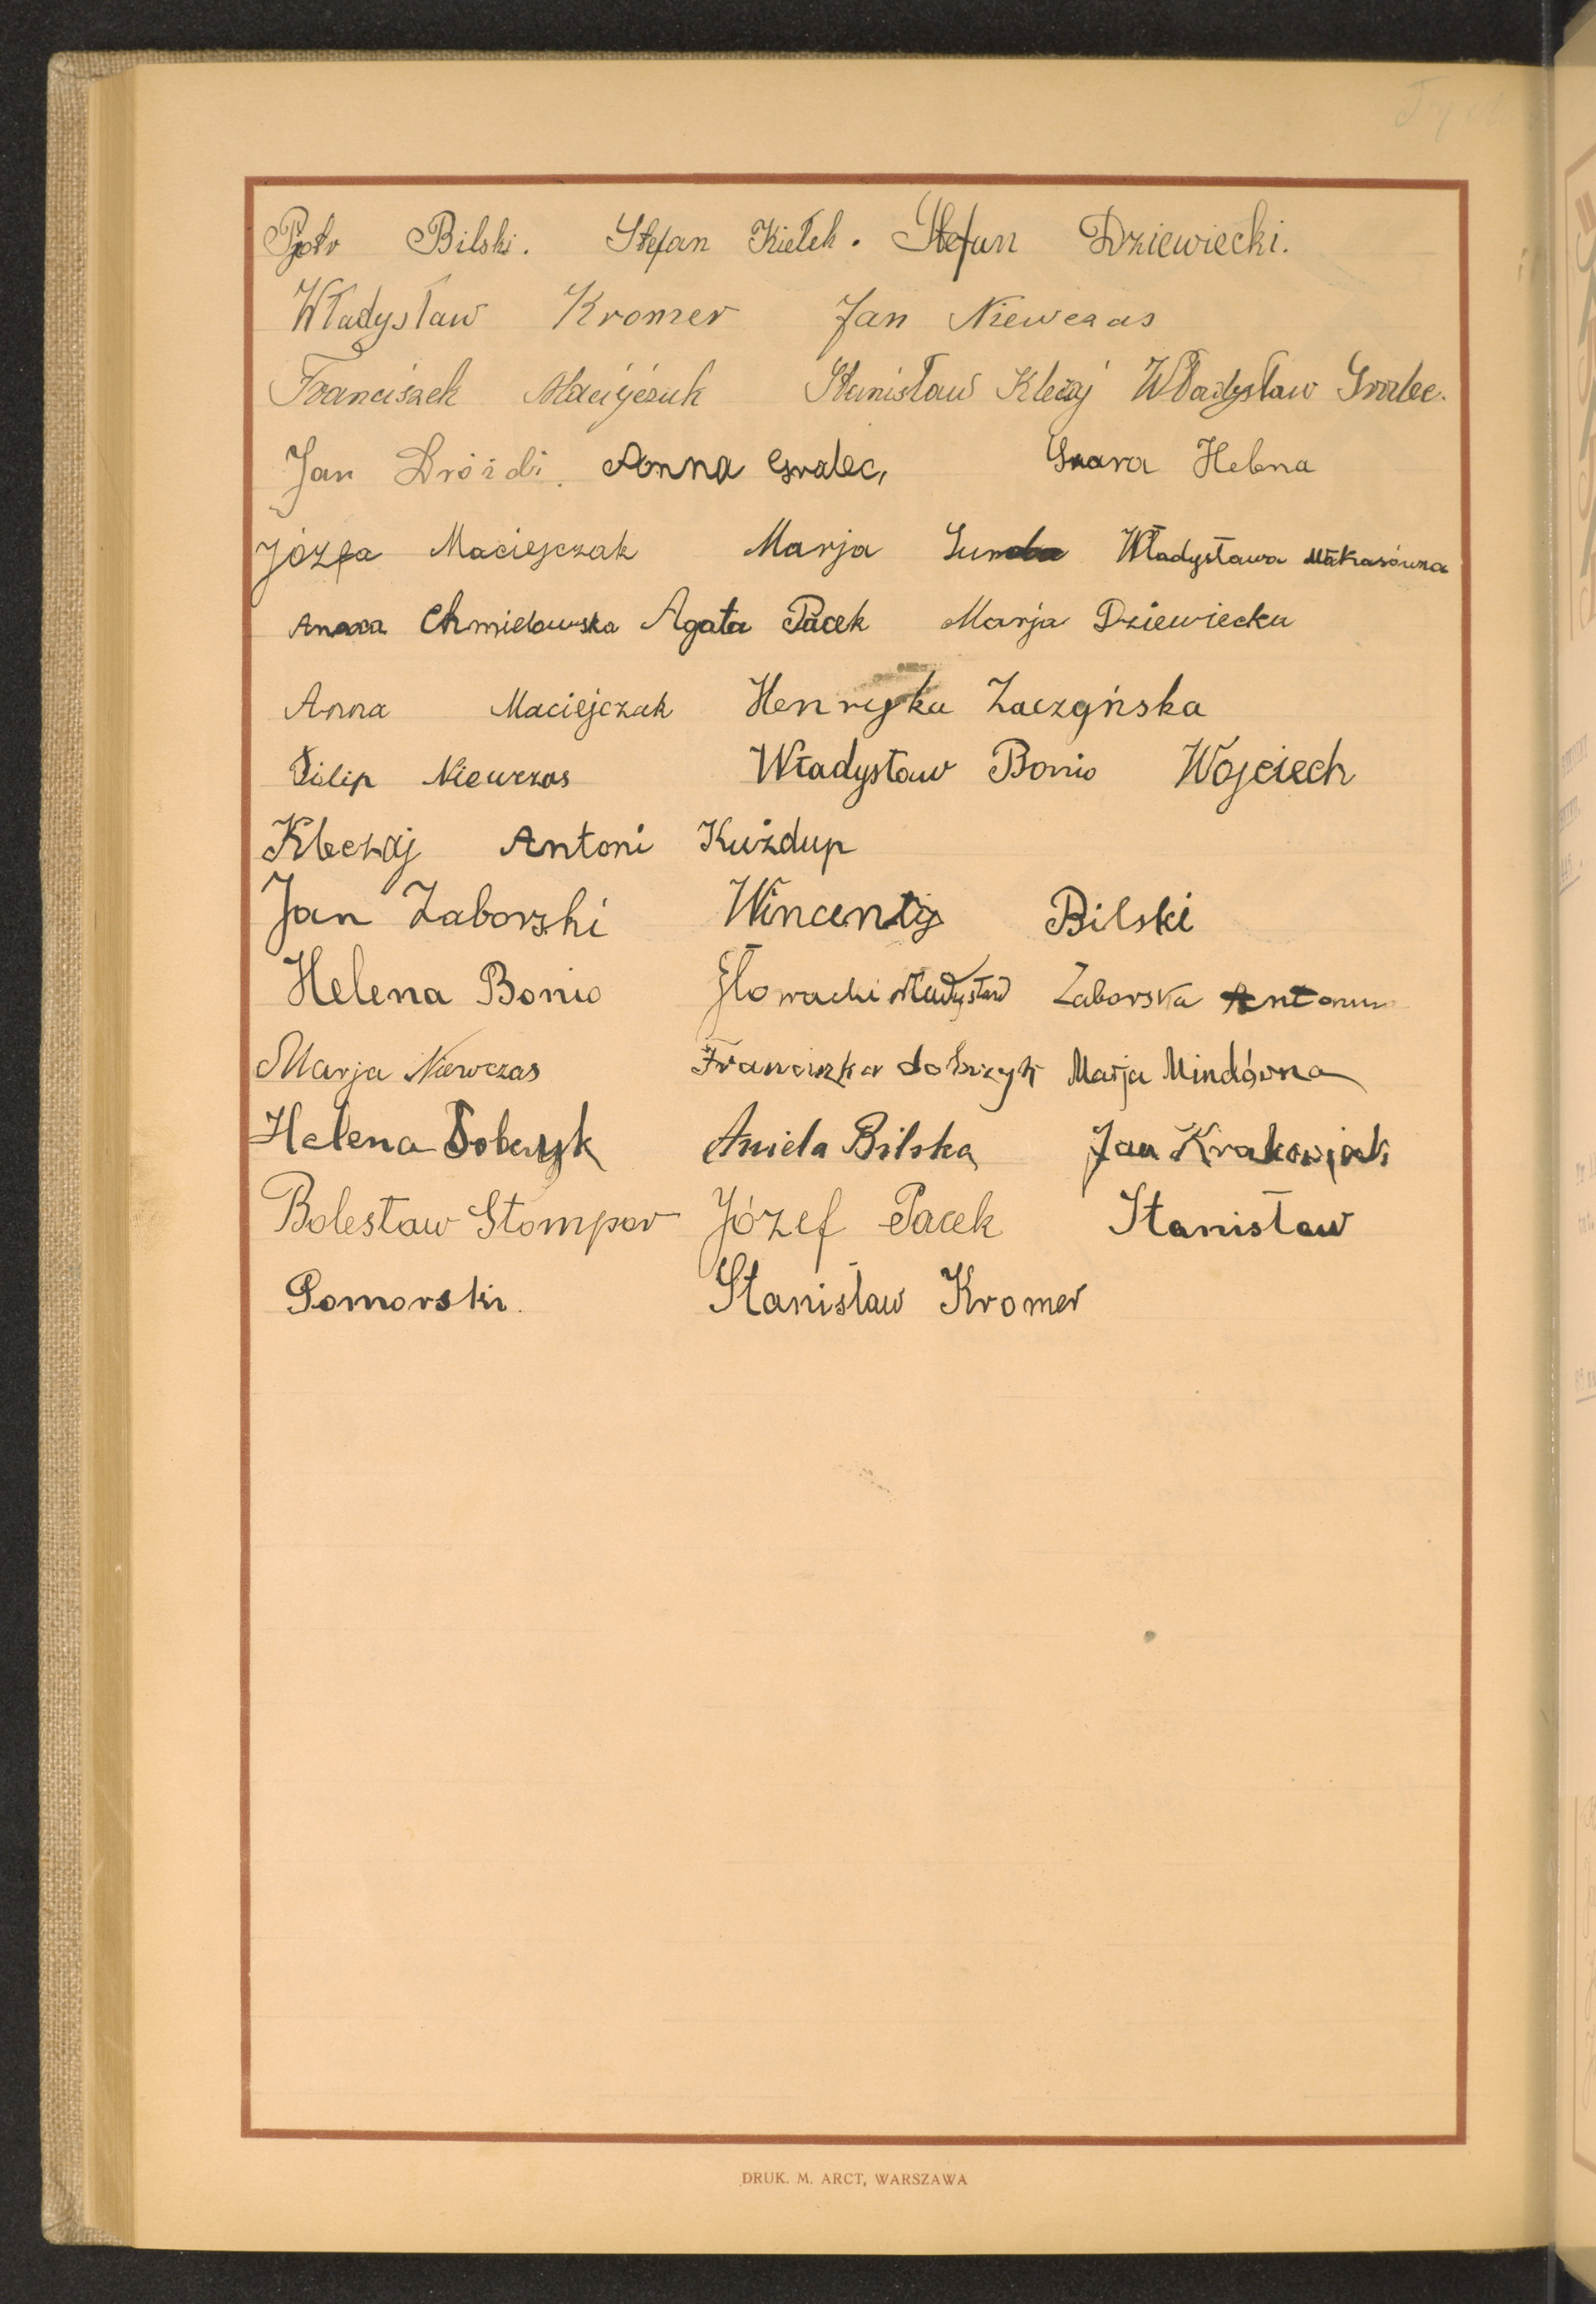 Pjotr Bilski. Stefan Kiełek. Stefan Dziewiecki.
Władysław Kromer Jan Niewczas
Franciszek Maciejczuk Stanisław Kleczaj Władysław Gralec.
Jan Dróżdż. Anna Gralec, Helena
Józefa Maciejczak Marja Władysława
Anna Chmielowska Agata Pacek Marja Dziewiecka
Anna Maciejczak Henryka Zaczyńska
Filip Niewczas Władysław Bonio Wojciech
Kleczaj Antoni Kużdup
Jan Zaborski Wincenty Bilski
Helena Bonio Głowacki Władysław Zaborska
Marja Niewczas Franciszka dobrzyk Marja Mindówna
Helena Aniela Bilska Jan Krakowjak
Bolesław Stompor Józef Pacek Stanisław
Pomorski. Stanisław Kromer
DRUK. M. ARCT, WARSZAWA